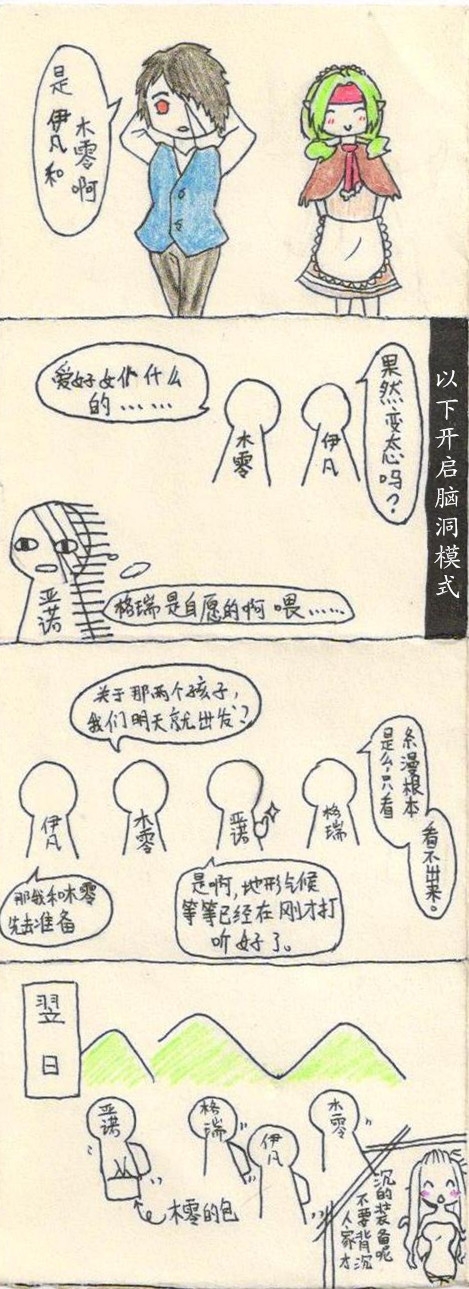 是
伊凡和
木零啊
以下开启脑洞模式
果然变态吗？
爱好女们什么
的……
木零
伊凡
亚诺
格瑞是自愿的啊 喂……
关于那两个孩子，
我们明天就出发？
是么，只看
条漫根本
看不出来。
伊凡
木零
亚诺
格瑞
那我和木零
先去准备
是啊，地形气候
等等已经在刚才打
听好了。
翌日
亚诺
格瑞
伊凡
木零
木零的包
人家才
不要背沉
沉的装备呢